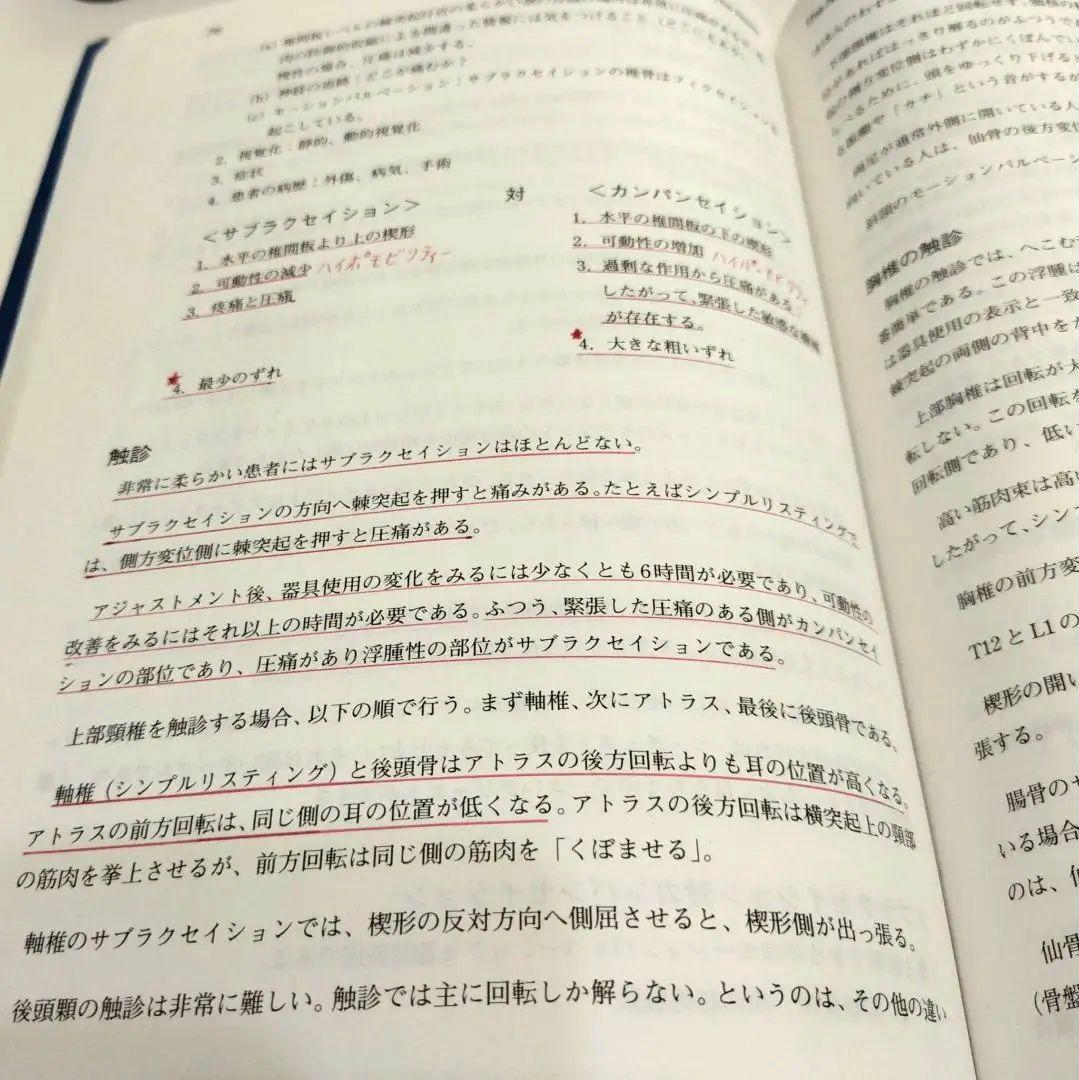 肉の防御的収縮による間違った情報には気をつけること
慢性の場合、圧痛は減少する。
(b) 神経の
(c) モーションパルペーション：サブラクセイションの椎骨はフィクセイションを
起こしている。
2. 視覚化：静的、動的視覚化
3. 症状
4. 患者の病歴：外傷、病気、手術
＜サブラクセイション＞ 対 ＜カンパンセイション＞
1. 水平の椎間板より上の楔形
2. 可動性の減少 ハイポモビリティー
3. 疼痛と圧痛
★4. 最少のずれ
1. 水平の椎間板の下の楔形
2. 可動性の増加 ハイパーモビリティ
3. 過剰な作用から圧痛がある。
したがって、緊張した敏感な
が存在する。
★4. 大きな粗いずれ
触診
非常に柔らかい患者にはサブラクセイションはほとんどない。
サブラクセイションの方向へ棘突起を押すと痛みがある。たとえばシンプルリスティングで
は、側方変位側に棘突起を押すと圧痛がある。
アジャストメント後、器具使用の変化をみるには少なくとも6時間が必要であり、可動性の
改善をみるにはそれ以上の時間が必要である。ふつう、緊張した圧痛のある側がカンパンセイ
ションの部位であり、圧痛があり浮腫性の部位がサブラクセイションである。
上部頸椎を触診する場合、以下の順で行う。まず軸椎、次にアトラス、最後に後頭骨である。
軸椎（シンプルリスティング）と後頭骨はアトラスの後方回転よりも耳の位置が高くなる。
アトラスの前方回転は、同じ側の耳の位置が低くなる。アトラスの後方回転は横突起上の頸部
の筋肉を挙上させるが、前方回転は同じ側の筋肉を「くぼませる」。
軸椎のサブラクセイションでは、楔形の反対方向へ側屈させると、楔形側が出っ張る。
後頭顆の触診は非常に難しい。触診では主に回転しか解らない。というのは、その他の違い
下部頸椎はそれほど回転せず
があればはっきり解るのがふつうで
側方変位側はわずかにくぼんでい
べるために、頭をゆっくり下げる
振動や「カチ」という音がするか
両足が通常外側に開いている人
向いている人は、仙骨の後方変位
斜頸のモーションパルペーシ
胸椎の触診
胸椎の触診では、へこむ
番簡単である。この浮腫は
は器具使用の表示と一致
棘突起の両側の背中をか
上部胸椎は回転が大
転しない。この回転を
回転側であり、低い
高い筋肉束は高い
したがって、シン
胸椎の前方変
T12とL1の
楔形の開い
張する。
腸骨のサ
いる場合
のは、仙
仙骨
(骨盤